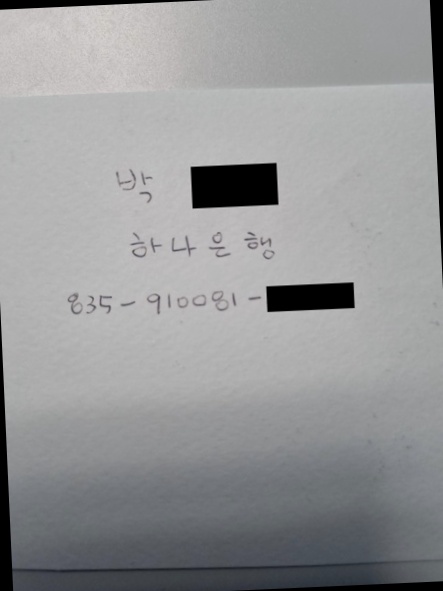 박
하나은행
835-910081-